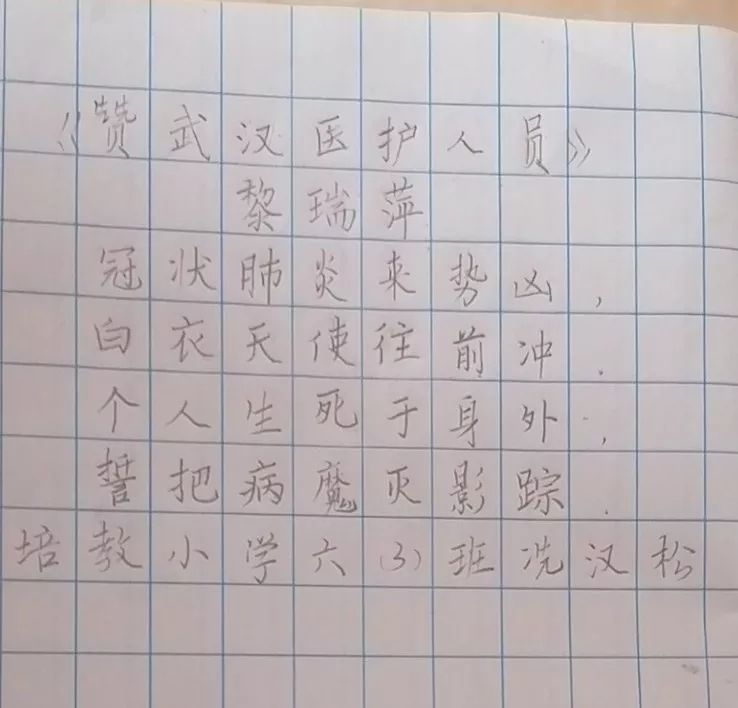 《赞武汉医护人员》
黎瑞萍
冠状肺炎来势凶，
白衣天使往前冲.
个人生死于身外，
誓把病魔灭影踪.
培教小学六(3)班冼汉松